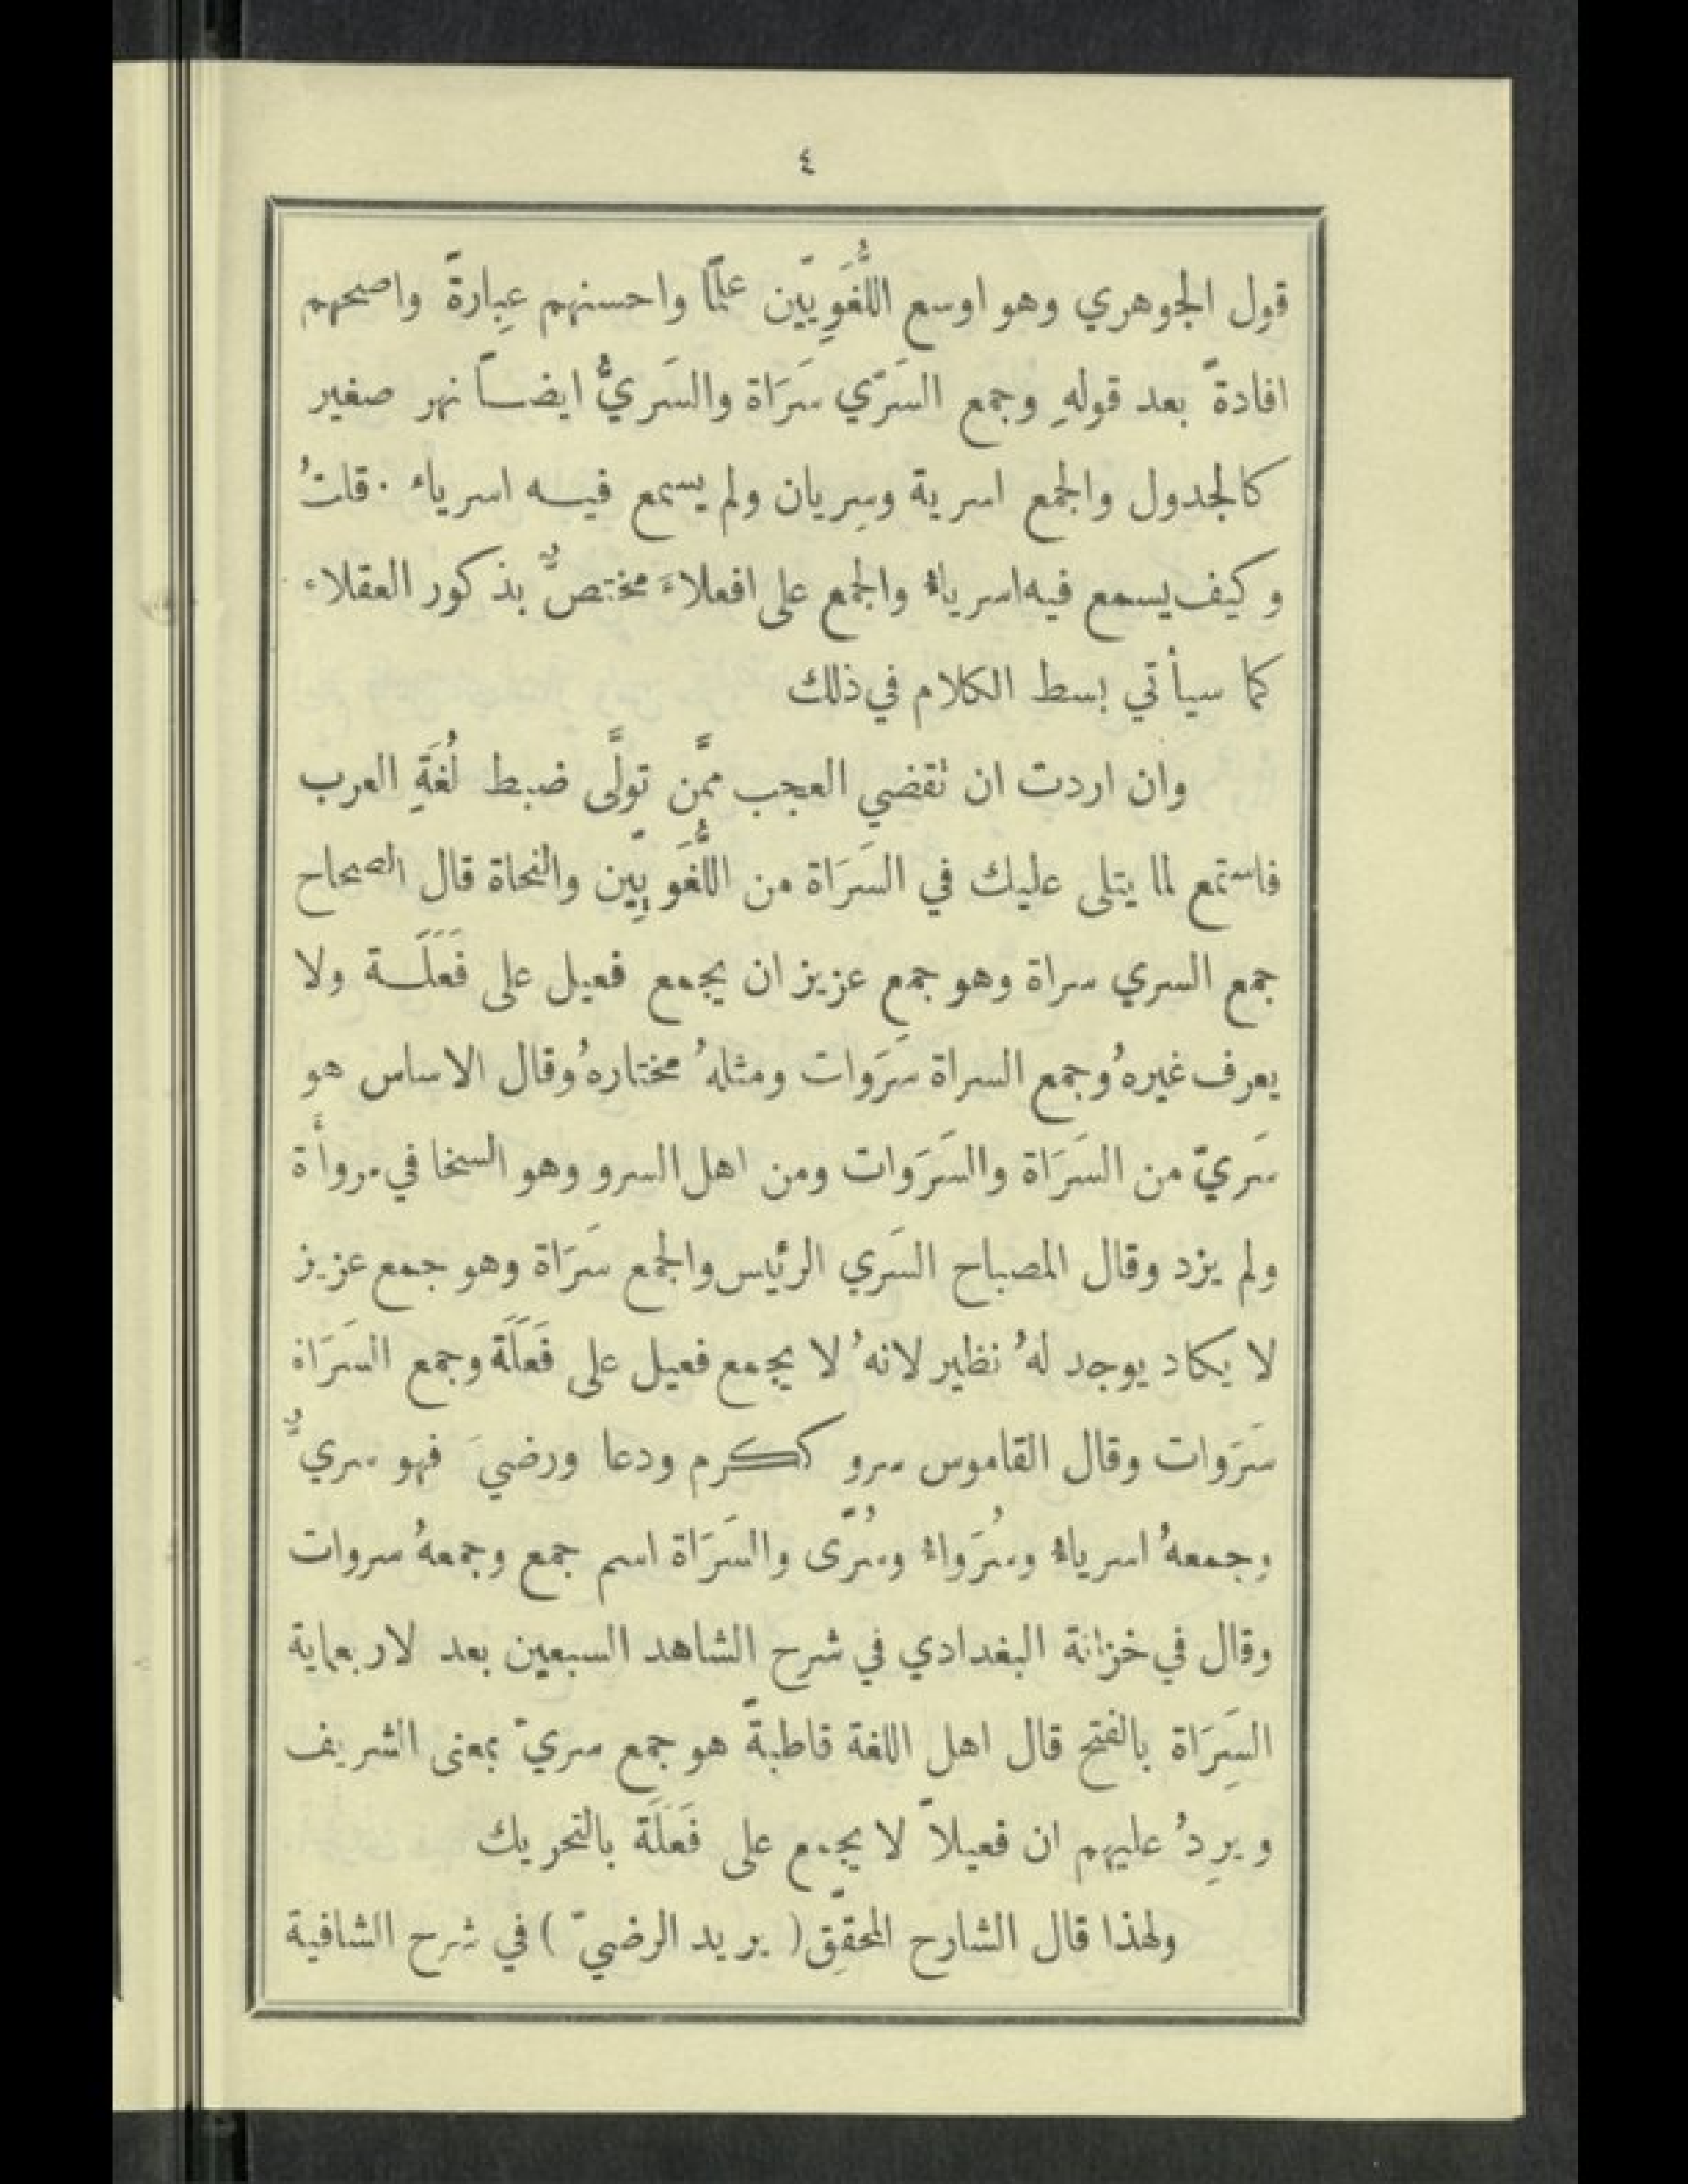 ٤
قول الجوهري وهو اوسع اللُّغَوِيّين علمًا واحسنهم عِبارةً واصحهم
افادةً بعد قولهِ وجمع السَرّي سَرَاة والسَريُّ ايضاً نهر صغير
كالجدول والجمع اسرية وسِريان ولم يسمع فيه اسرياء · قلتُ
وكيف يسمع فيه اسرياءُ والجمع على افعلاءَ مختصٌّ بذكور العقلاء
كما سيأتي بسط الكلام في ذلك
وان اردت ان نقضي العجب ممَّن تولَّى ضبط لُغَةِ العرب
فاستمع لما يتلى عليك في السَرَاة من اللُّغَوِيّين والنحاة قال الصحاح
جمع السري سراة وهو جمع عزيز ان يجمع فعيل على فَعَلَة ولا
يعرف غيرهُ وجمع السراة سَرَوات ومثلهُ مختارهُ وقال الاساس هو
سَريّ من السَرَاة والسَرَوات ومن اهل السرو وهو السخا في مروأة
ولم يزد وقال المصباح السَري الرئيس والجمع سَرَاة وهو جمع عزيز
لا يكاد يوجد لهُ نظير لانهُ لا يجمع فعيل على فَعَلَة وجمع السَرَاة
سَرَوات وقال القاموس سرو ككرم ودعا ورضيَ فهو سريٌّ
وجمعهُ اسرياءُ وسُرَواءُ وسُرّى والسَرَاة اسم جمع وجمعهُ سروات
وقال في خزانة البغدادي في شرح الشاهد السبعين بعد لاربعماية
السَِرَاة بالفتح قال اهل اللغة قاطبةً هو جمع سريّ بمعنى الشريف
ويرِدُ عليهم ان فعيلاً لا يجمع على فَعَلَة بالتحريك
ولهذا قال الشارح المحقّق ( يريد الرضيّ ) في شرح الشافية